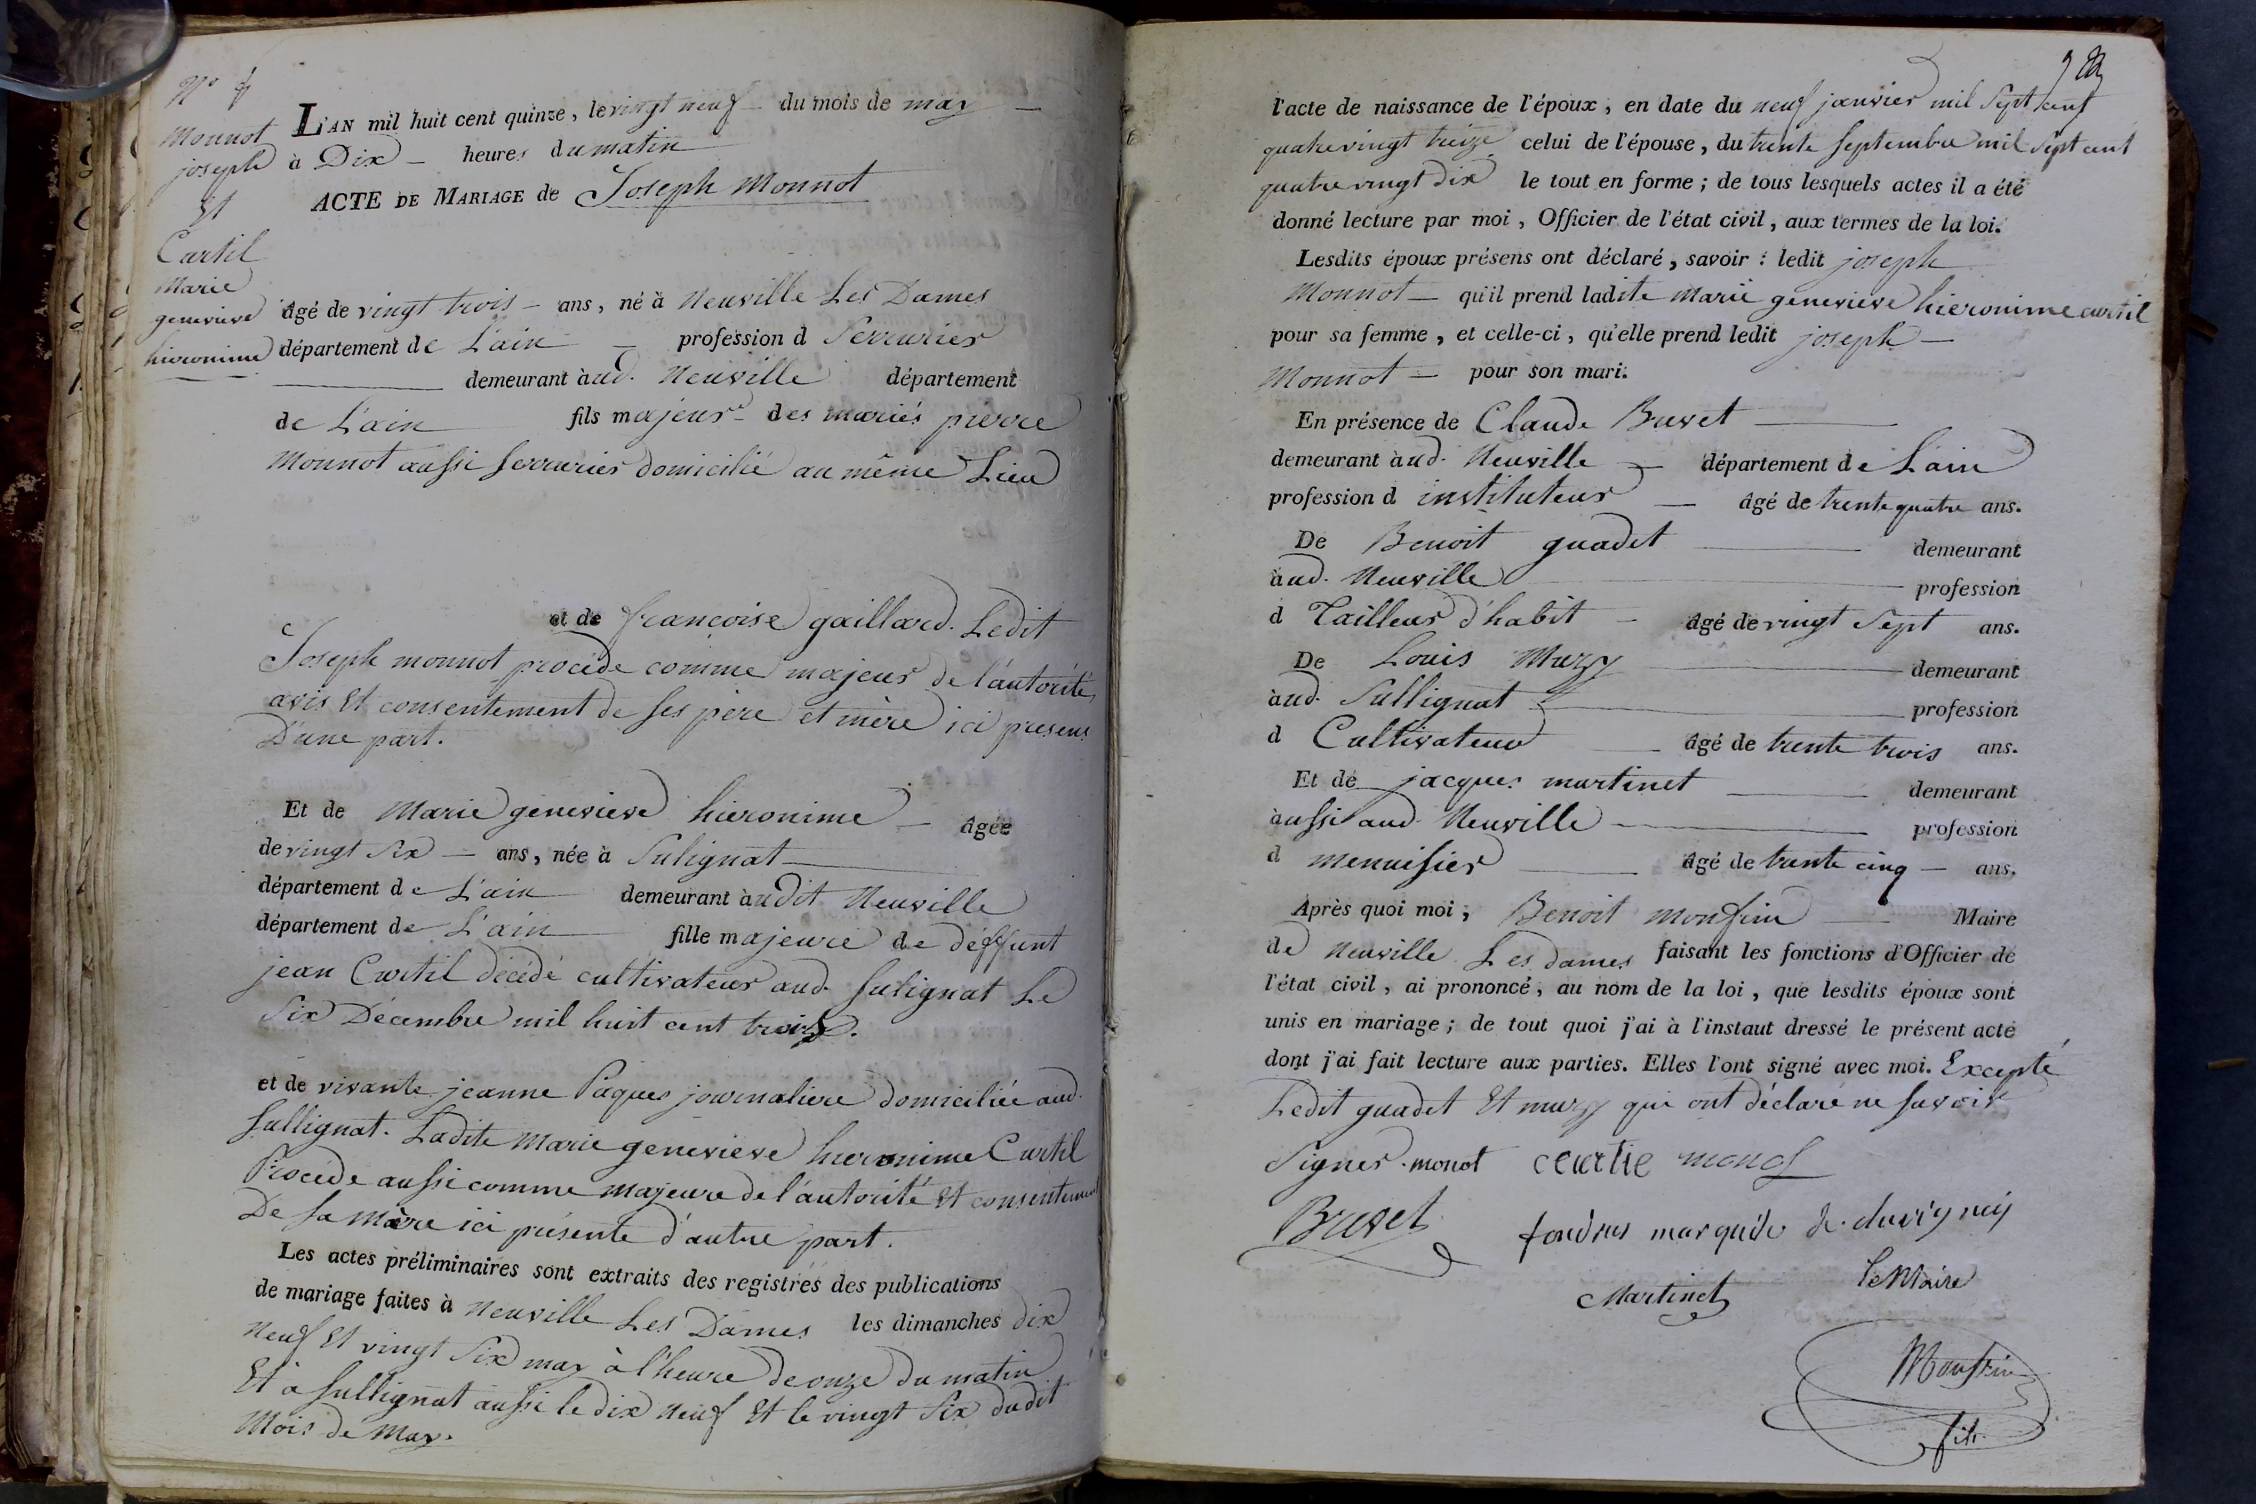 N°
Monnot
joseph
Et
Curtil
Marie
genevieve
hieronime
L'AN mil huit cent quinze, le vingt neuf – du mois de may –
à Dix – heures du matin
ACTE DE MARIAGE de Joseph Monnot
âgé de vingt trois – ans, né à Neuville Les Dames
département de L'ain – profession d Serrurier
demeurant à ud. Neuville département
de L'ain fils majeur – des mariés pierre
Monnot aussi serrurier domicilié au même Lieu
et de françoise gaillard. Ledit
Joseph monnot procède comme majeur de l'autorité,
avis Et consentement de ses père et mère ici presens
D'une part.
Et de Marie genevieve hieronime – âgée
de vingt Six – ans, née à Sulignat
département de L'ain demeurant à udit Neuville
département de L'ain fille majeure de déffunt
jean Curtil décédé cultivateur aud. Sulignat Le
Six Décembre mil huit cent trois.
et de vivante jeanne Pâques journaliere domiciliée aud.
Sullignat. Ladite Marie genevieve hieronime Curtil
Procède aussi comme majeure de l'autorité Et consentement
De sa Mère ici présente d'autre part.
Les actes préliminaires sont extraits des registres des publications
de mariage faites à Neuville Les Dames les dimanches dix
neuf Et vingt Six may à l'heure de onze du matin
Et à Sullignat aussi le dix neuf Et le vingt Six dudit
Mois de May.
l'acte de naissance de l'époux, en date du neuf janvier mil Sept cent
quatre vingt treize celui de l'épouse, du trente Septembre mil Sept cent
quatre vingt dix le tout en forme; de tous lesquels actes il a été
donné lecture par moi, Officier de l'état civil, aux termes de la loi.
Lesdits époux présens ont déclaré, savoir : ledit joseph
Monnot – qu'il prend ladite Marie genevieve hieronime curtil
pour sa femme, et celle-ci, qu'elle prend ledit joseph –
Monnot – pour son mari.
En présence de Claude Buvet
demeurant à ud. Neuville – département de L'ain
profession d instituteur – âgé de trente quatre ans.
De Benoit guadet demeurant
à ud. Neuville profession
d Tailleur d'habit – âgé de vingt Sept ans.
De Louis Muzy demeurant
à ud. Sullignat profession
d Cultivateur âgé de trente trois ans.
Et de jacques martinet demeurant
à ussi aud. Neuville profession
d menuisier âgé de trente cinq – ans.
Après quoi moi, Benoit monfrin Maire
de Neuville Les dames faisant les fonctions d'Officier de
l'état civil, ai prononcé, au nom de la loi, que lesdits époux sont
unis en mariage; de tout quoi j'ai à l'instaut dressé le présent acte
dont j'ai fait lecture aux parties. Elles l'ont signé avec moi. Excepté
Ledit guadet Et muzy qui ont déclaré ne savoir
Signer. monot ceurtie monot
Buvet
marquise
Martinet Le Maire
Monfrin
fils